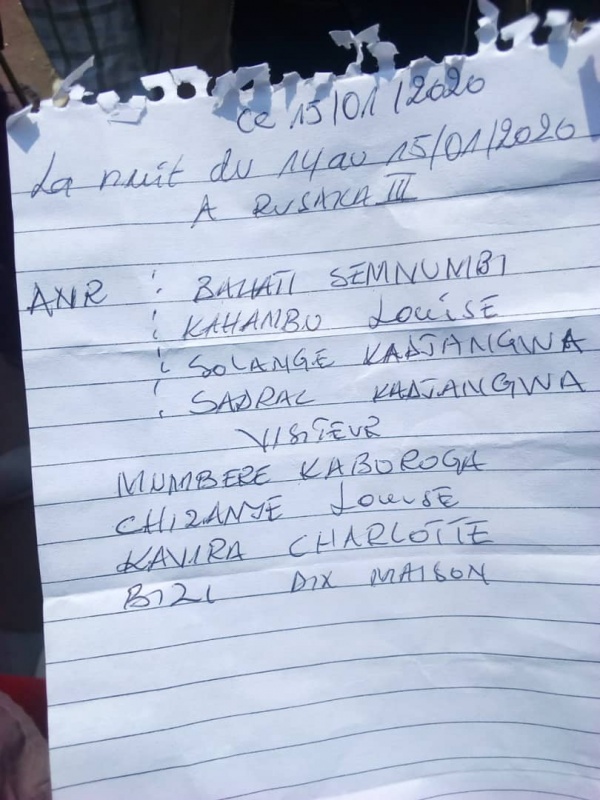 ce 15/01/2020
La nuit du 14 au 15/01/2020
A RUSAKA III
ANR : BAHATI SEMNUMBI
: KAHAMBU Louise
: SOLANGE KADJANGWA
: SADRAC KADJANGWA
VISITEUR
MUMBERE KABOROGA
CHIZANJE Louise
KAVIRA CHARLOTTE
BIZI DIX MAISON